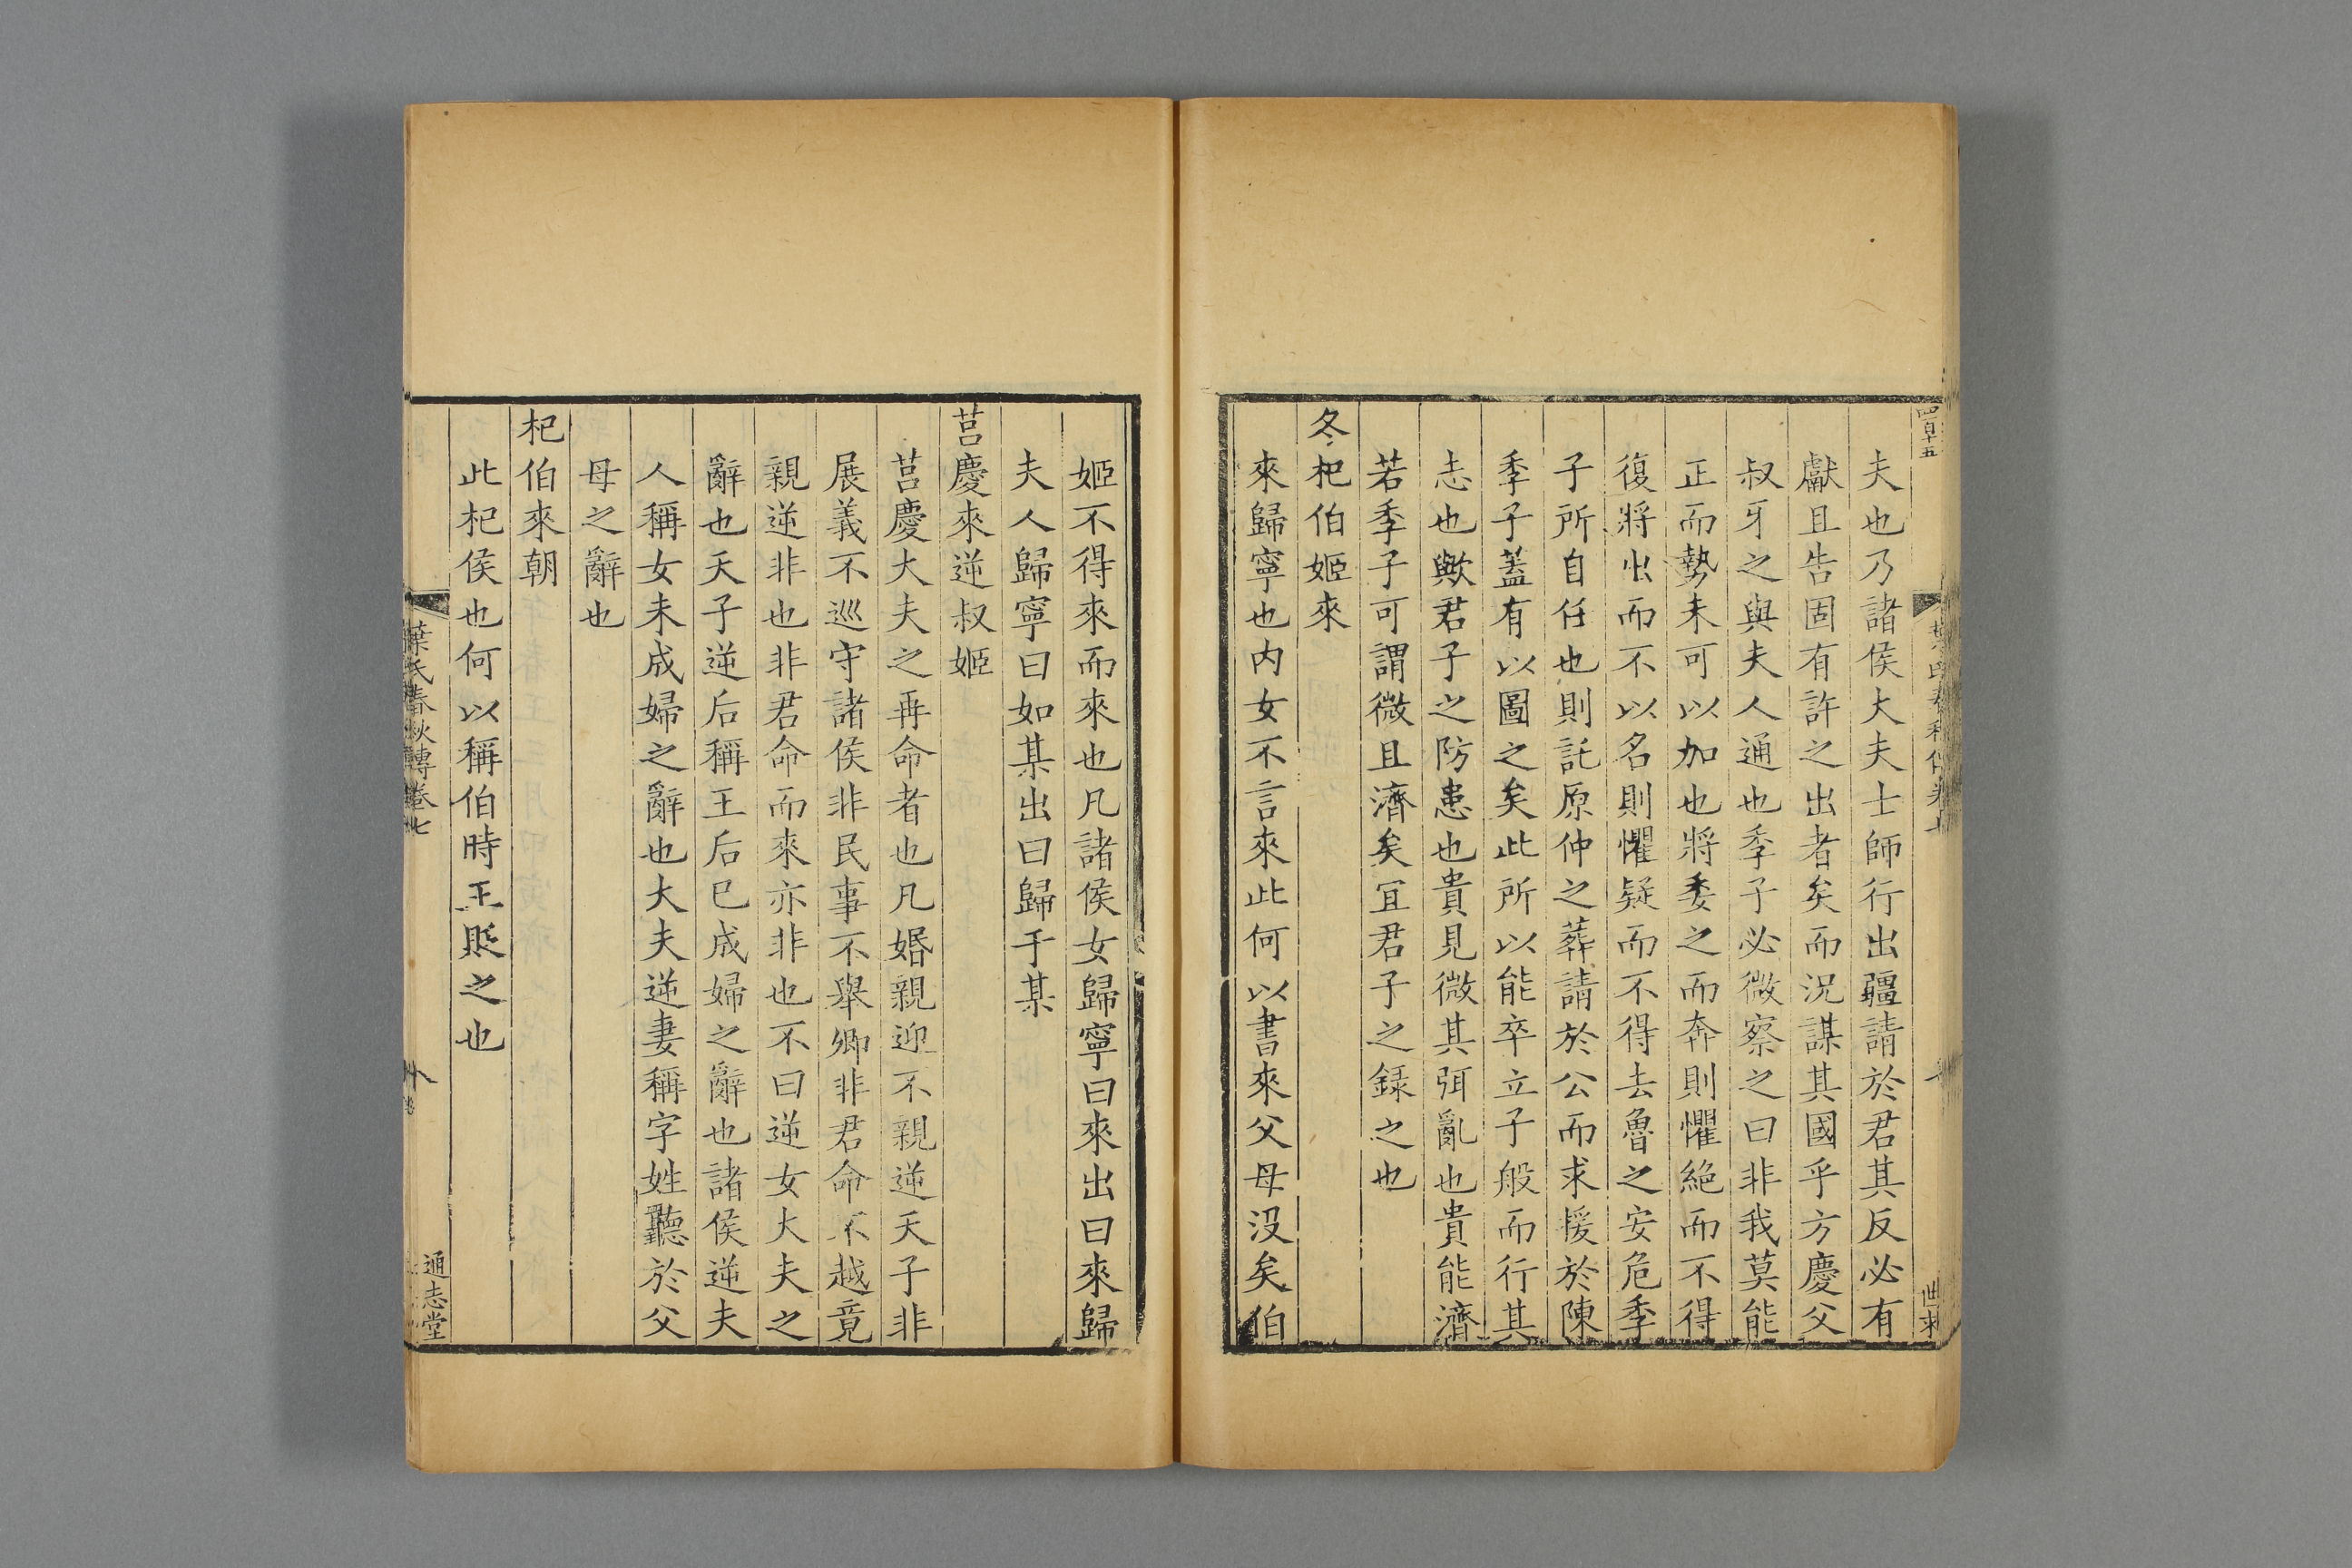 四百十五
夫也乃諸侯大夫士師行出疆請於君其反必有
獻且告固有許之出者矣而況謀其國乎方慶父
叔牙之與夫人通也季子必微察之曰非我莫能
正而勢未可以加也將委之而奔則懼絕而不得
復將出而不以名則懼疑而不得去魯之安危季
子所自任也則託原仲之葬請於公而求援於陳
季子蓋有以圖之矣此所以能卒立子般而行其
志也歟君子之防患也貴見微其弭亂也貴能濟
若季子可謂微且濟矣冝君子之録之也
冬杞伯姬來
來歸寧也内女不言來此何以書來父母没矣伯
姬不得來而來也凡諸侯女歸寧曰來出曰來歸
夫人歸寧曰如某出曰歸于某
莒慶來逆叔姬
莒慶大夫之再命者也凡婚親迎不親逆天子非
展義不巡守諸侯非民事不舉卿非君命不越竟
親逆非也非君命而來亦非也不曰逆女大夫之
辭也天子逆后稱王后已成婦之辭也諸侯逆夫
人稱女未成婦之辭也大夫逆妻稱字姓聽於父
母之辭也
杞伯來朝
此杞侯也何以稱伯時王貶之也
葉氏春秋傳卷七
通志堂